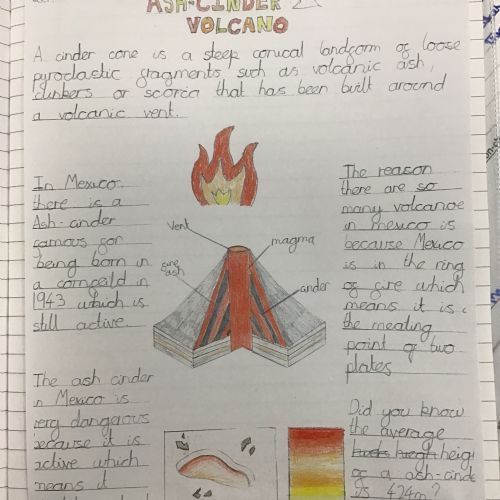 ASH-CINDER
VOLCANO
A cinder cone is a steep conical landform of loose
pyroclastic fragments, such as volcanic ash,
clinkers or scoria that has been built around
a volcanic vent.
In Mexico
there is a
Ash-cinder
famous for
being born in
a cornfeild in
1943 which is
still active.
The ash cinder
in Mexico is
very dangerous
because it is
active which
means it
Vent
magma
fine
ash
cinder
The reason
there are so
many volcanoe
in mexico is
because Mexico
is in the ring
of fire which
means it is
the meating
point of two
plates
Did you know
the average
heigh
of a ash-cinde
is 424m?